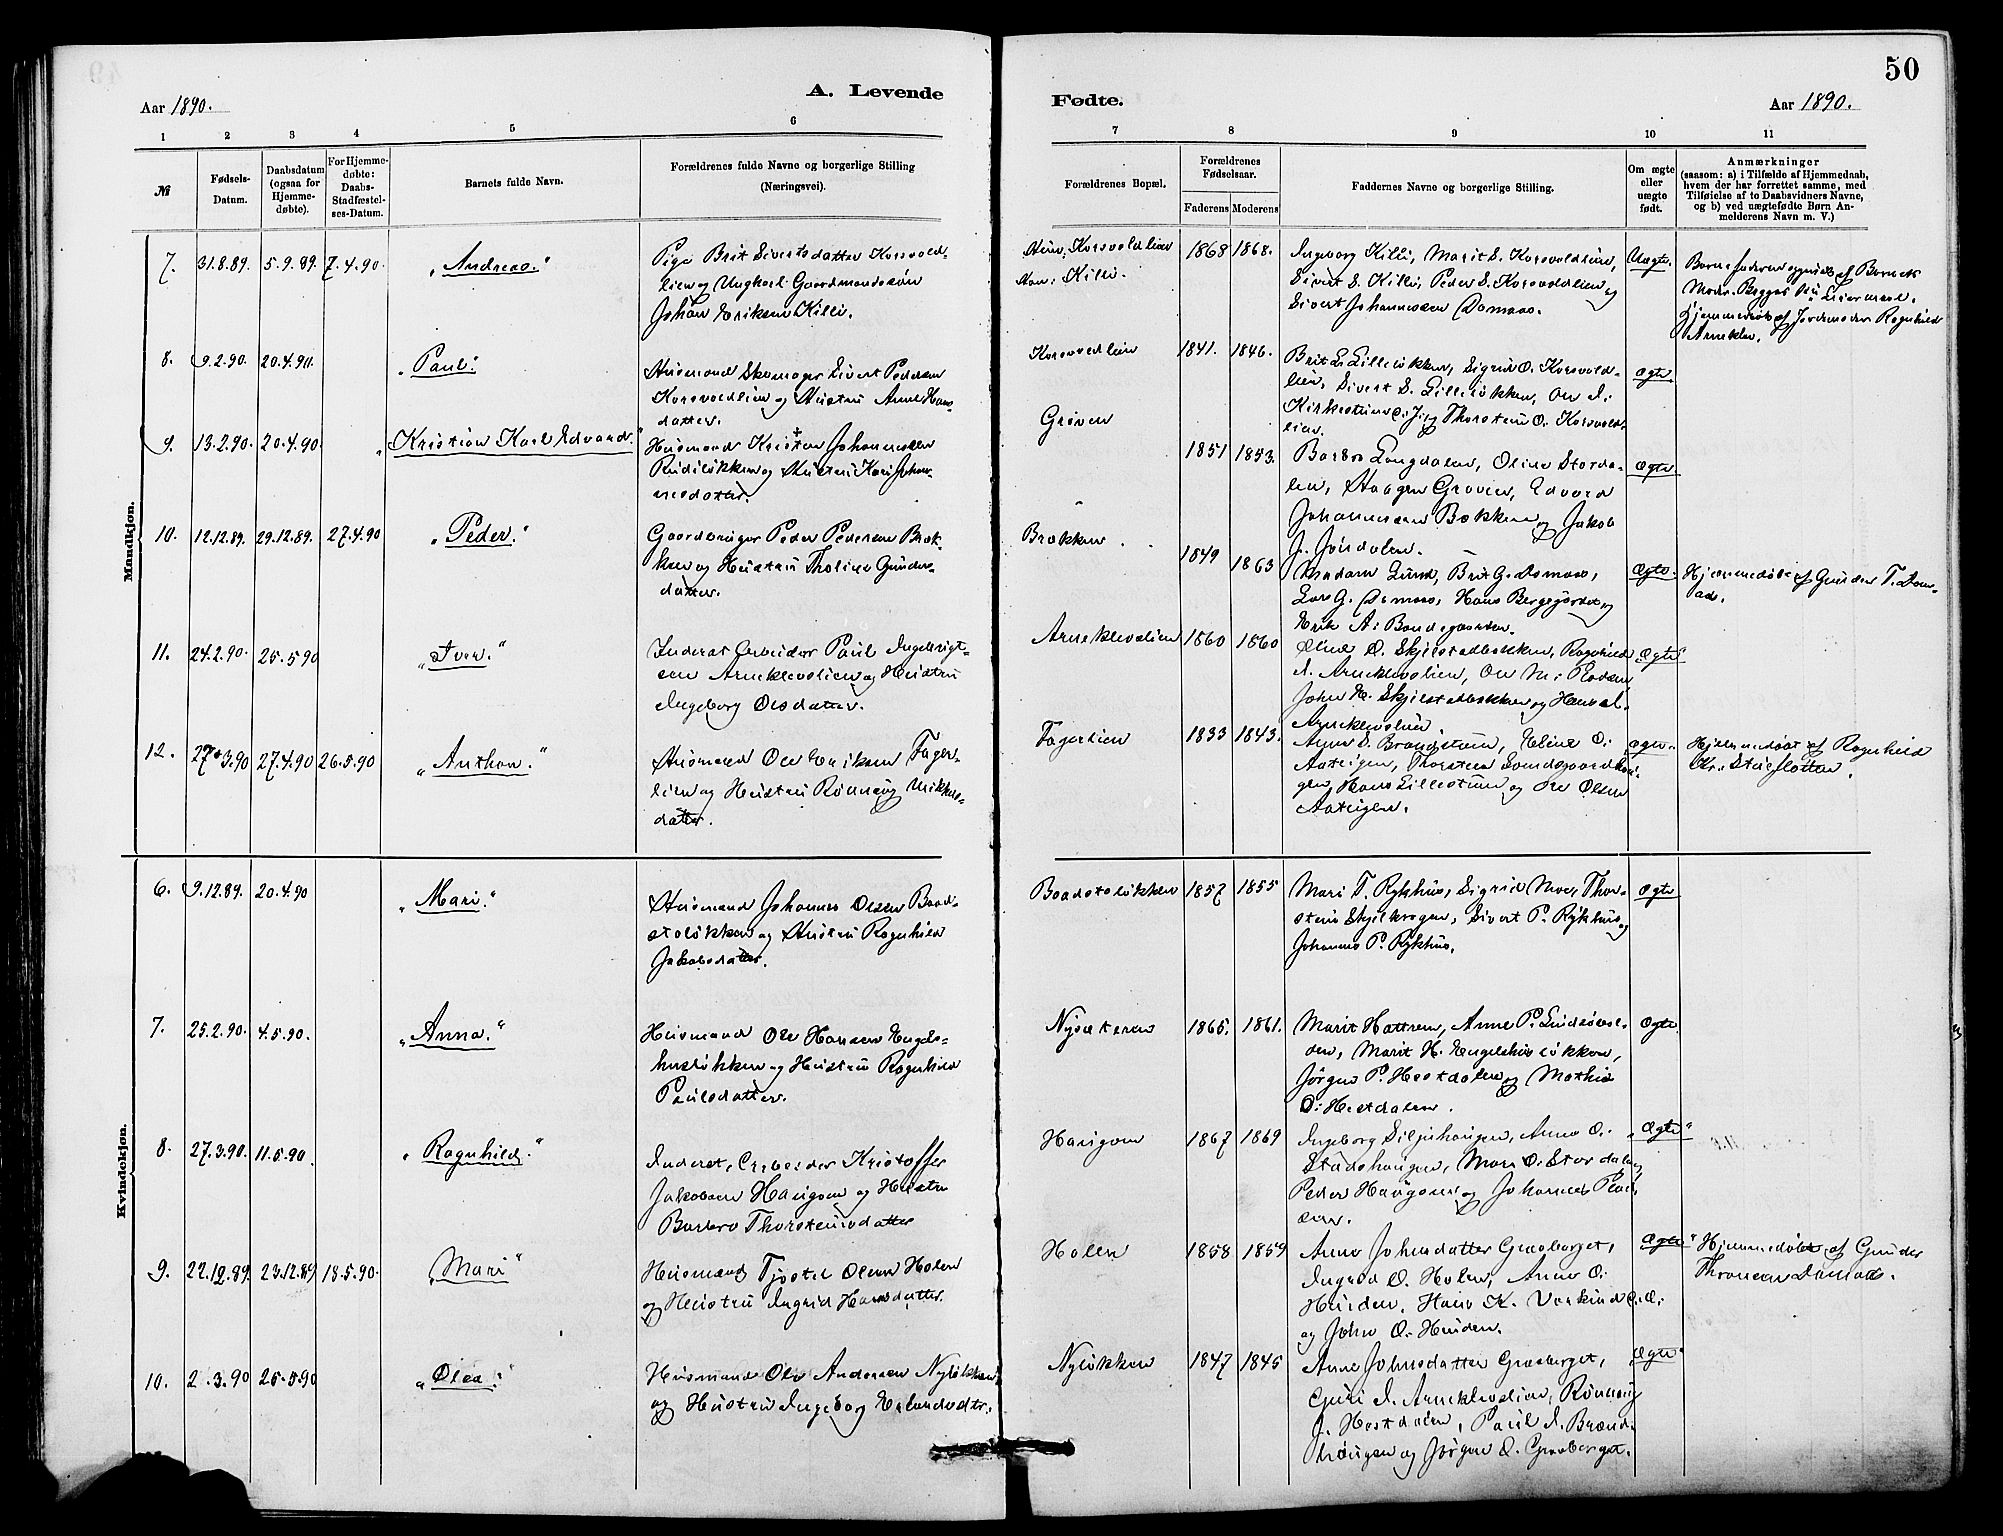 50
Aar 1890.
A. Levende
Fødte.
Aar 1890.
1 2 3 4 5 6 7 8 9 10 11
№
Fødsels-
Datum.
Daabsdatum
(ogsaa for
Hjemme-
døbte).
For Hjemme-
døbte:
Daabs-
Stadfæstel-
ses-Datum.
Barnets fulde Navn.
Forældrenes fulde Navne og borgerlige Stilling
(Næringsvei).
Forældrenes Bopæl.
Forældrenes
Fødselsaar.
Faderens Moderens
Faddernes Navne og borgerlige Stilling.
Om ægte
eller
uægte
født.
Anmærkninger
(saasom: a) i Tilfælde af Hjemmedaab,
hvem der har forrettet samme, med
Tilføielse af to Daabsvidners Navne,
og b) ved uægtefødte Børn An-
melderens Navn m. V.)
Mandkjøn.
7. 31.8.89. 5.9.89. 7.4.90. "Andreas."
Pige Brit Sivertsdatter Korsvold-
lien og Ungkarl Gaardmandssøn
Johan Eriksen Killi.
Korsvoldlien
Killi.
1868 1868.
Ingeborg Killi, Marit S. Korsvoldlien,
Sivert S. Killi, Peder S. Korsvoldlien og
Sivert Johannessen Domaas.
Uægte.
Barnefaderen opgivet af Barnets
Hjemmedøbt af Jordemoder Ragnhild
Arneklev.
8. 9.2.90. 20.4.90. "Paul."
Husmand Skomager Sivert Pedersen
Korsvoldlien og Hustru Anne Hans-
datter.
Korsvoldlien
1841. 1846.
Brit L. Lilleløkken, Sigrid O. Korsvold-
lien, Sivert S. Lilleløkken, Ole I.
Thorstein O. Korsvold-
lien.
ægte
9. 13.2.90. 20.4.90 "Kristian Karl Edvard."
Husmand Kristen Johannessen
Rudiløkken og Hustru Kari Johan-
nesdatter.
Grøven
1851 1853.
Barbro Langdalen, Oline Storda-
len, Haagen Grøven, Edvard
Johannessen Bækken og Jakob
J. Jøndalen.
ægte
10. 12.12.89. 29.12.89. 27.4.90 "Peder."
Gaardbruger Peder Pedersen Brok-
ken og Hustru Tholine Gunders-
datter.
Brokken.
1849 1863
Madam Lund, Brit G. Domaas,
Lars G. Domaas, Hans Bergejordet og
Erik A. Bondegaarden.
Ægte.
Hjemmedøbt af Gunder T. Dom-
aas.
11. 24.2.90. 25.5.90 "Iver."
Inderst Arbeider Paul Ingebrigt-
sen Arneklevslien og Hustru
Ingeborg Olsdatter.
Arneklevslien
1860 1860
Oline O. Skjelstadbakken, Ragnhild
I. Arneklevslien, Ole M. Plassen,
John E. Skjelstadbakken og Hans
Arneklevslien.
"Ægte"
12. 27.3.90 27.4.90 26.5.90 "Anthon."
Husmand Ole Eriksen Fager-
lien og Hustru Rønnaug Mikkels-
datter.
Fagerlien
1833 1843.
Anne S. Brandstuen, Eline O.
Aateigen, Thorstein Svendsgaardhau-
gen, Hans Lillestuen og Ole Olsen
Aateigen.
ægte.
Hjemmedøbt af Ragnhild
Kr. Stuefloten.
Kvindekjøn.
6. 9.12.89. 20.4.90 "Mari."
Husmand Johannes Olsen Baad-
stoløkken og Hustru Ragnhild
Jakobsdatter.
Baadstoløkken
1857 1855
Mari T. Rykhus, Sigrid Moe, Thor-
stein Skjelkrogen, Sivert P. Rykhus og
Johannes P. Rykhus.
ægte
7. 25.2.90. 4.5.90. "Anna."
Husmand Ole Hansen Engels-
husløkken og Hustru Ragnhild
Paulsdatter.
Nysæteren
1865. 1861.
Marit Hattrem, Anne P.
den, Marit H. Engelshusløkken,
Jørgen P. Hestdalen og Mathis
O. Hestdalen.
ægte.
8. 27.3.90. 11.5.90. "Ragnhild."
Inderst, Arbeider Kristoffer
Jakobsen Haugom og Hustru
Barbro Thorsteinsdatter
Haugom
1867 1869
Ingeborg Siljuhaugen, Anne O.
Stadshaugen, Mari O. Stordalen,
Peder Haugom og Johannes
"ægte"
9. 22.12.89. 23.12.89 18.5.90. "Mari"
Husmand Tjøstel Olsen Holen
og Hustru Ingrid Hansdatter.
Holen
1858 1859
Anne Johnsdatter Graaberget,
Ingrid O. Holen, Anne O.
Huiden, Hans K. Verkind
og John O. Huiden.
ægte"
Hjemmedøbt af Gunder
Thronsen Domaas.
10. 2.3.90 25.5.90 "Olea."
Husmand Ole Andersen Nyløkken
og Hustru Ingeborg Erlandsdtr.
Nyløkken
1847 1845
Anne Johnsdatter Graaberget,
Guri I. Arneklevslien, Rønnaug
J. Hestdalen, Paul I. Brænd-
haugen og Jørgen O. Graaberget.
ægte